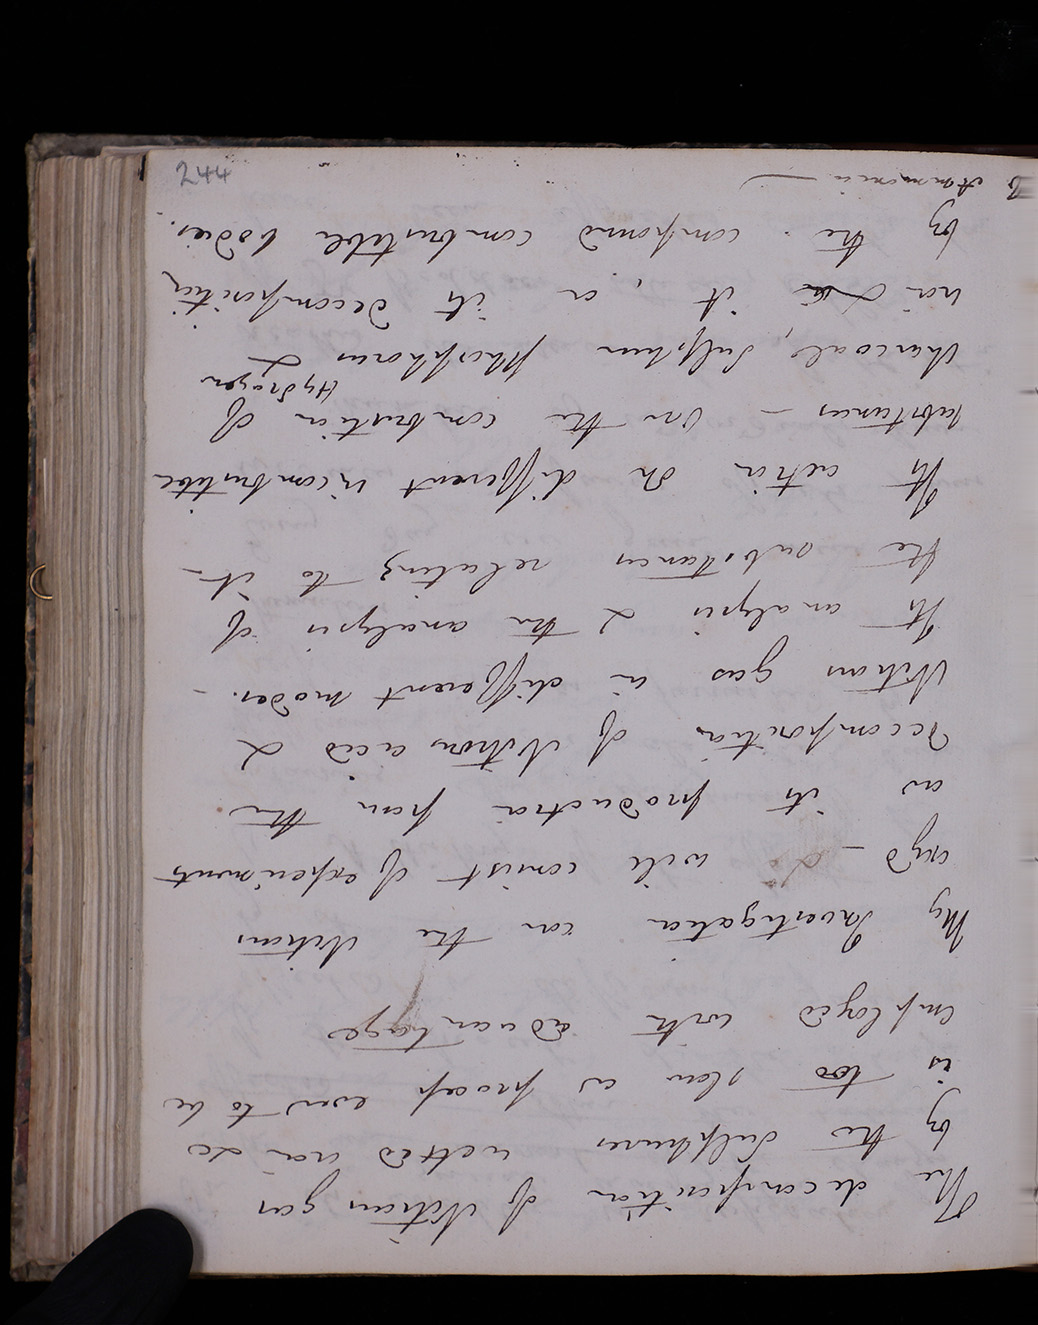 244
The decomposition of Nitrous gas
by the Sulphures wetted iron &c
is too slow a process ever to be
employed with advantage
My Investigation on the Nitrous
oxyd - will consist of experiments
as its production from the
decomposition of Nitrous acid &
Nitrous gas in different modes. -
Its analysis & the analysis of
the substances relating to it -
Its action on different incombustible
substances - On the combustion of
Hydrogen
Charcoal, Sulphur phosphorus &
iron in it, or, its decomposition
by the compound combustible bodies.
Ammonia